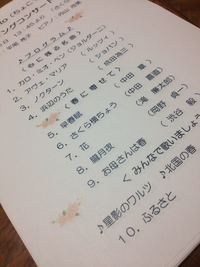 ングコンサート
♪プログラム♪
《春に贈る名歌》
1. カロ・ミオ・ベン (ジョルダーニ)
2. アヴェ・マリア (ルッツィ)
3. ノクターン (ショパン)
4. 浜辺のうた (成田為三)
《春に寄せて》
5. 早春賦 (中田 章)
6. さくら横ちょう (中田 喜直)
7. 花 (滝 廉太郎)
8. 朧月夜 (岡野 貞一)
9. お母さんは春 (渋谷 毅)
<みんなで歌いましょう
♪北国の春
♪星影のワルツ
10. ふるさと